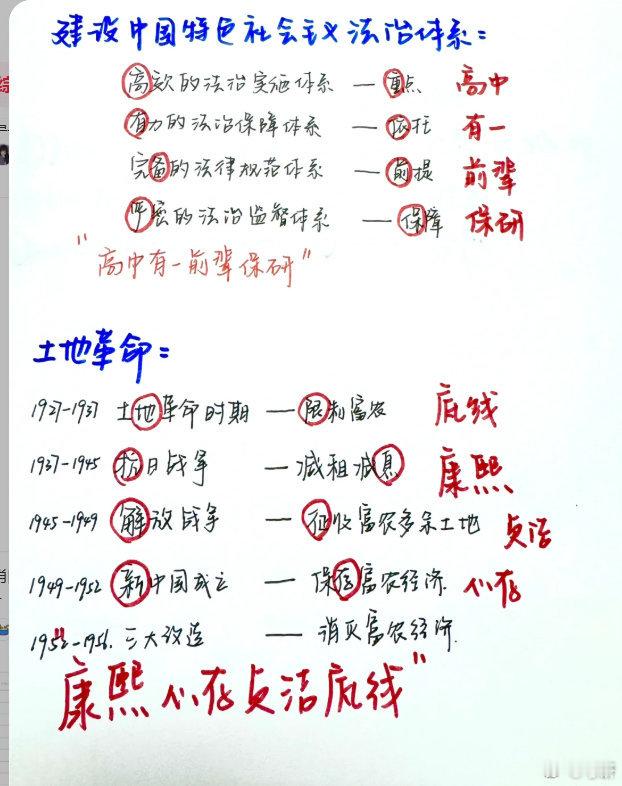 建设中国特色社会主义法治体系：
高效的法治实施体系 — 重点 高中
有力的法治保障体系 — 依托 有一
完备的法律规范体系 — 前提 前辈
严密的法治监督体系 — 保障 保研
"高中有一前辈保研"
土地革命：
1927-1937 土地革命时期 — 限制富农 底线
1937-1945 抗日战争 — 减租减息 康熙
1945-1949 解放战争 — 征收富农多余土地 贞洁
1949-1952 新中国成立 — 保存富农经济. 心存
1952-1956. 三大改造 — 消灭富农经济.
康熙心存贞洁底线"